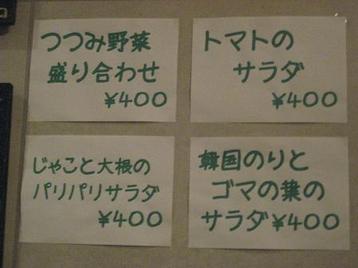 つつみ野菜
盛り合わせ
¥400
トマトの
サラダ
¥400
じゃこと大根の
パリパリサラダ
¥400
韓国のりと
ゴマの葉の
サラダ¥400